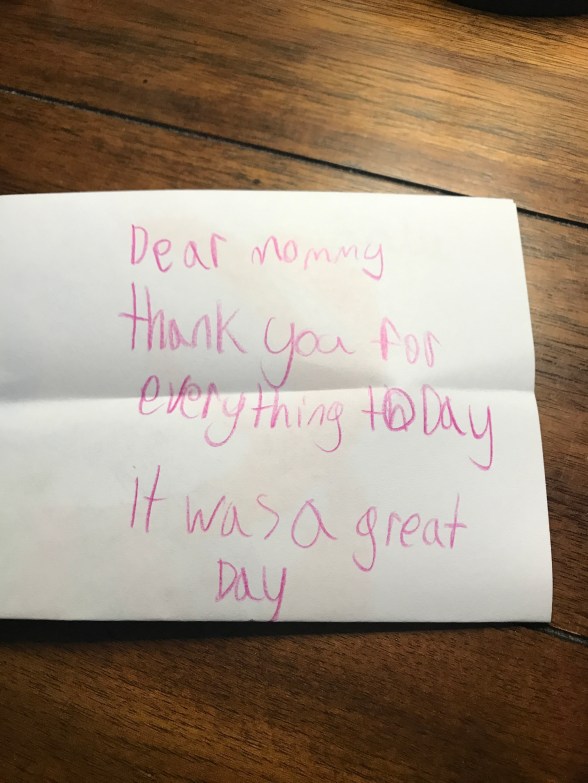 Dear mommy
thank you for
everything toDay
it was a great
Day